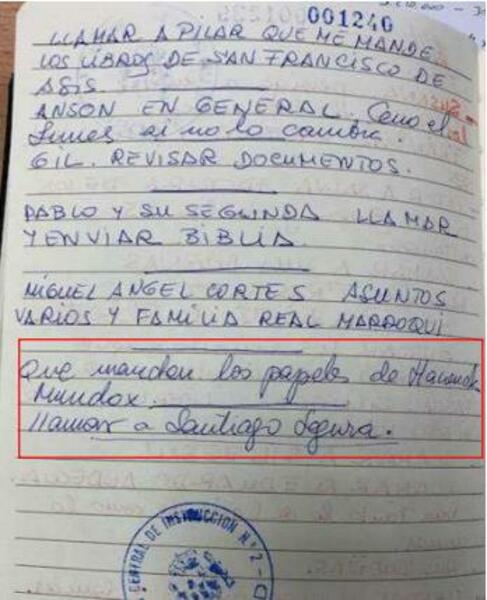 001240
LLAMAR A PILAR QUE ME MANDE
LOS LIBROS DE SAN FRANCISCO DE
ASIS.
ANSON EN GENERAL. Ceno el
lunes si no lo cambia.
GIL. REVISAR DOCUMENTOS.
PABLO Y SU SEGUNDA LLAMAR
Y ENVIAR BIBLIA
MIGUEL ANGEL CORTES ASUNTOS
VARIOS Y FAMILIA REAL MARROQUI
Que manden los papeles de Hacienda
Mundox
llamar a Santiago Segura.
CENTRAL DE INSTRUCCION N.º 2